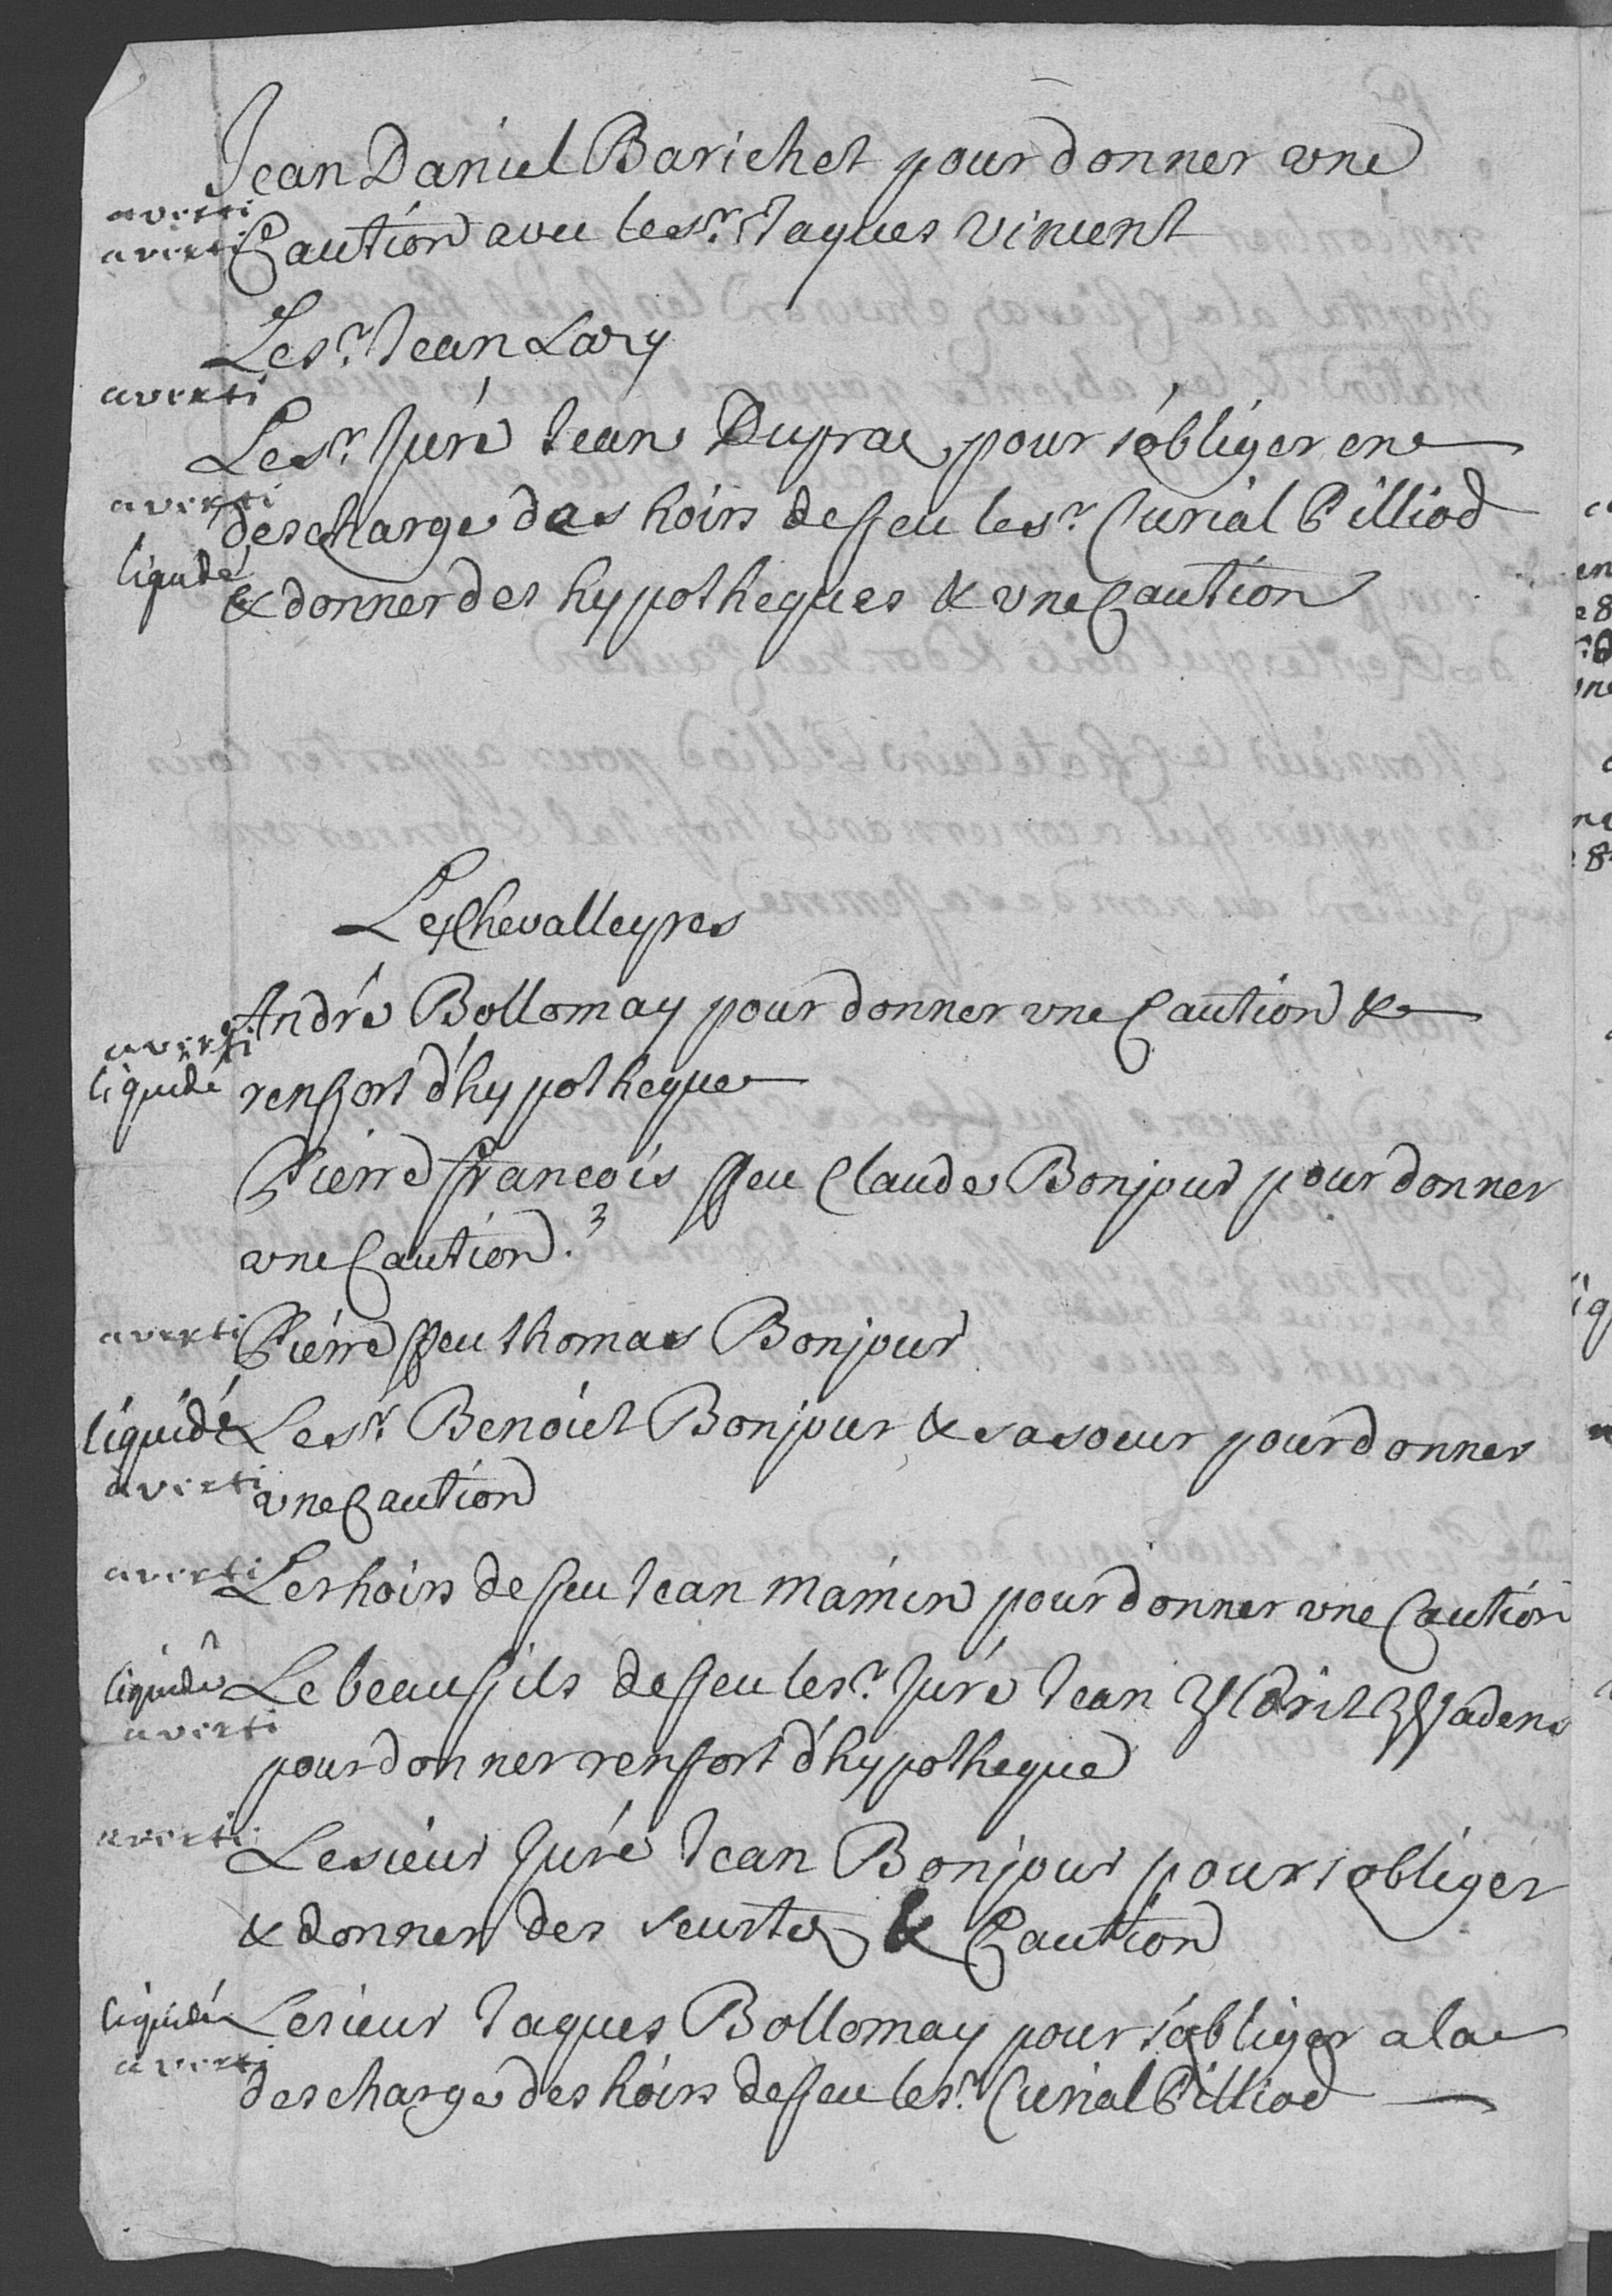 Jean Daniel Barichet pour donner vne
averti
averti Caution avec le sr. Jaques Vincent
Le sr. Jean Lary
averti
Le sr. Juré Jean Duprae, pour s'obliger en
averti descharge des hoirs de feu le sr. Curial Pilliod
liquidé & donner des hypotheques & vne Caution
Les Chevalleyres
André Bollomay pour donner vne Caution &
averti
liquidé renfort d'hypotheque
Pierre François ffeu Claude Bonjour pour donner
vne Caution. 3
averti Pierre ffeu thomas Bonjour
liquidé Le sr. Benoict Bonjour & sa soeur pour donner
averti vne Caution
averti Les hoirs de feu Jean Mamin pour donner vne Caution
liquidé Le beau fils de feu le sr. Juré Jean
averti pour donner renfort d'hypotheque
averti Le sieur Juré Jean Bonjour pour s'obliger
& donner des seurtes & Caution
liquidé Le sieur Jaques Bollomay pour s'obliger a la
averti descharge des hoirs de feu le sr. Curial Pilliod